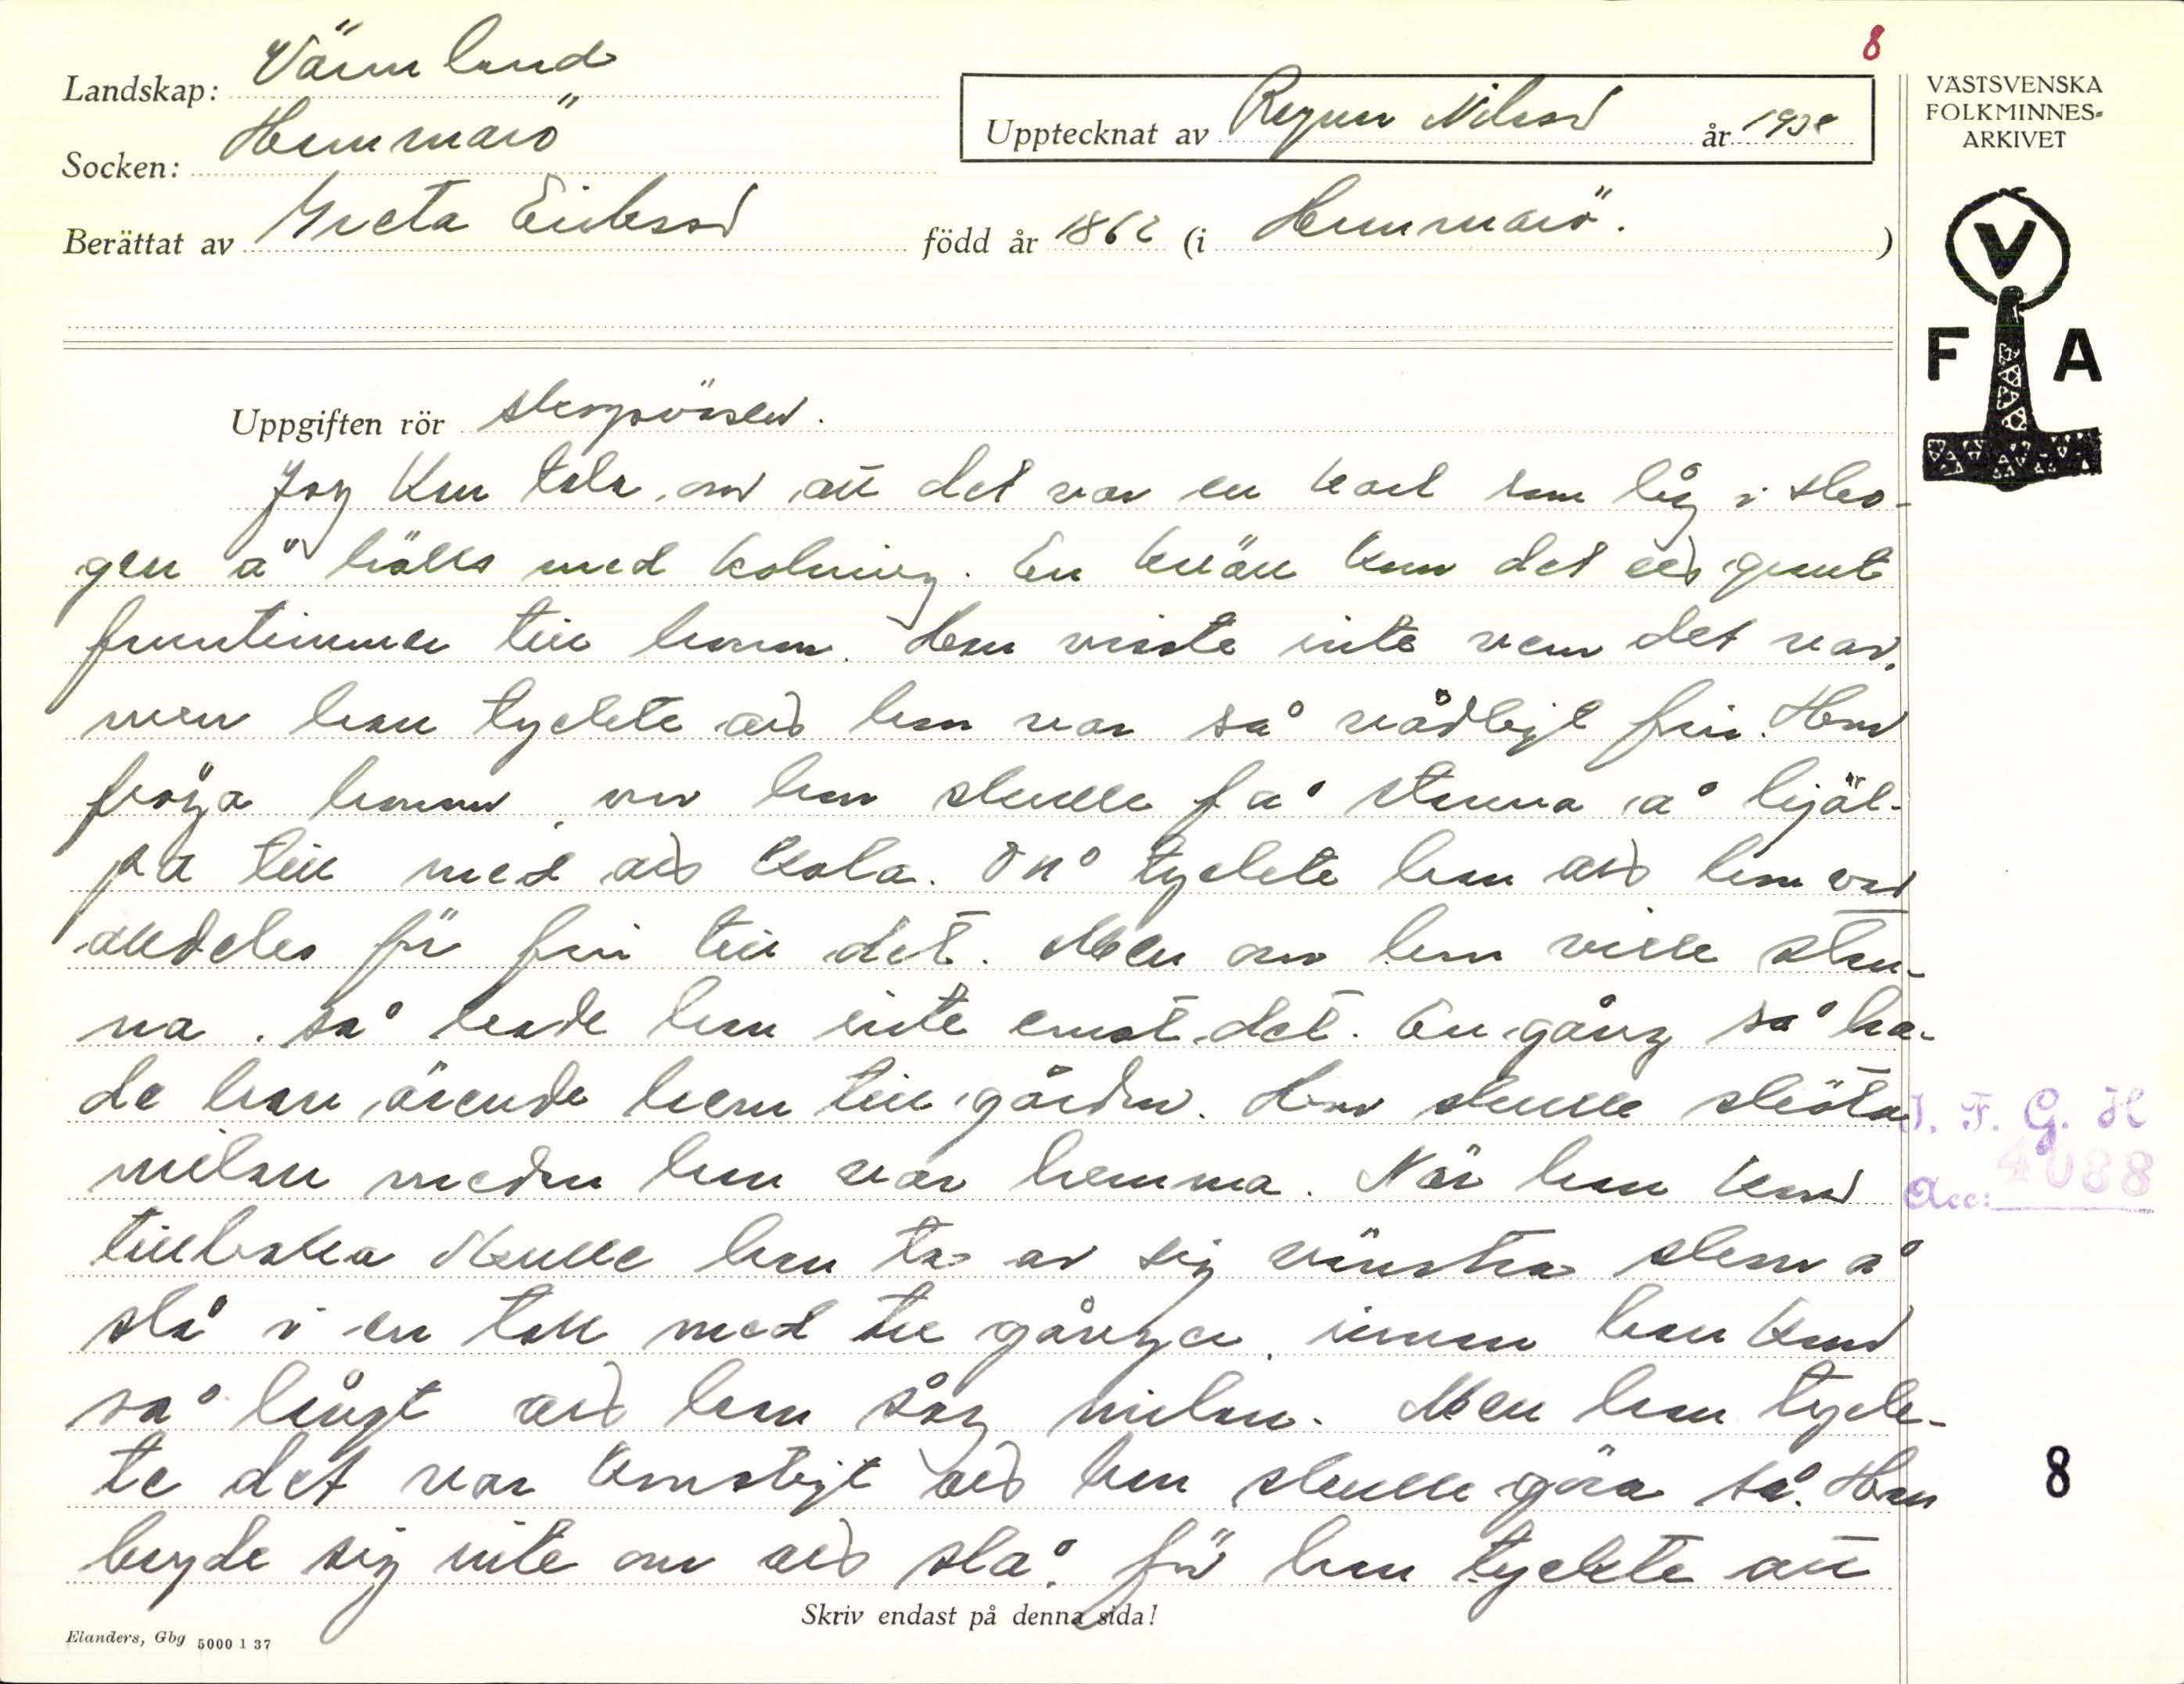 8
Landskap: Värmland
Socken: Hammarö
Upptecknat av Ragnar Nilsson år 1938
Berättat av Greta Eriksson född år 1862 (i Hammarö.)
VÄSTSVENSKA
FOLKMINNES-
ARKIVET
V
F A
Uppgiften rör skogsväsen.
Jag kan tala om att det var en karl som låg i sko-
gen å hölls med kolning. En kväll kom det ett grant
fruntimmer till honom. Han visste inte vem det var,
men han tyckte att hon var så rådligt fin. Hon
fråga honom om hon skulle få stanna å hjäl-
pa till med att kola. Då tyckte han att hon var
alldeles för fin till det. Men om hon ville stan-
na. så hade han inte emot det. En gång så ha-
de han ärende hem till gården. Hon skulle sköta
milan medan han var hemma. När han kom
tillbaka skulle han ta av sig vänstra skon å
slå i en tall med tre gånger, innan han kom
så långt att han såg milan. Men han tyck-
te det var konstigt att han skulle göra så. Han
brydde sig inte om att slå, för han tyckte att
Skriv endast på denna sida!
Elanders, Gbg 5000 1 37
I. F. G. H
Acc: 4088
8